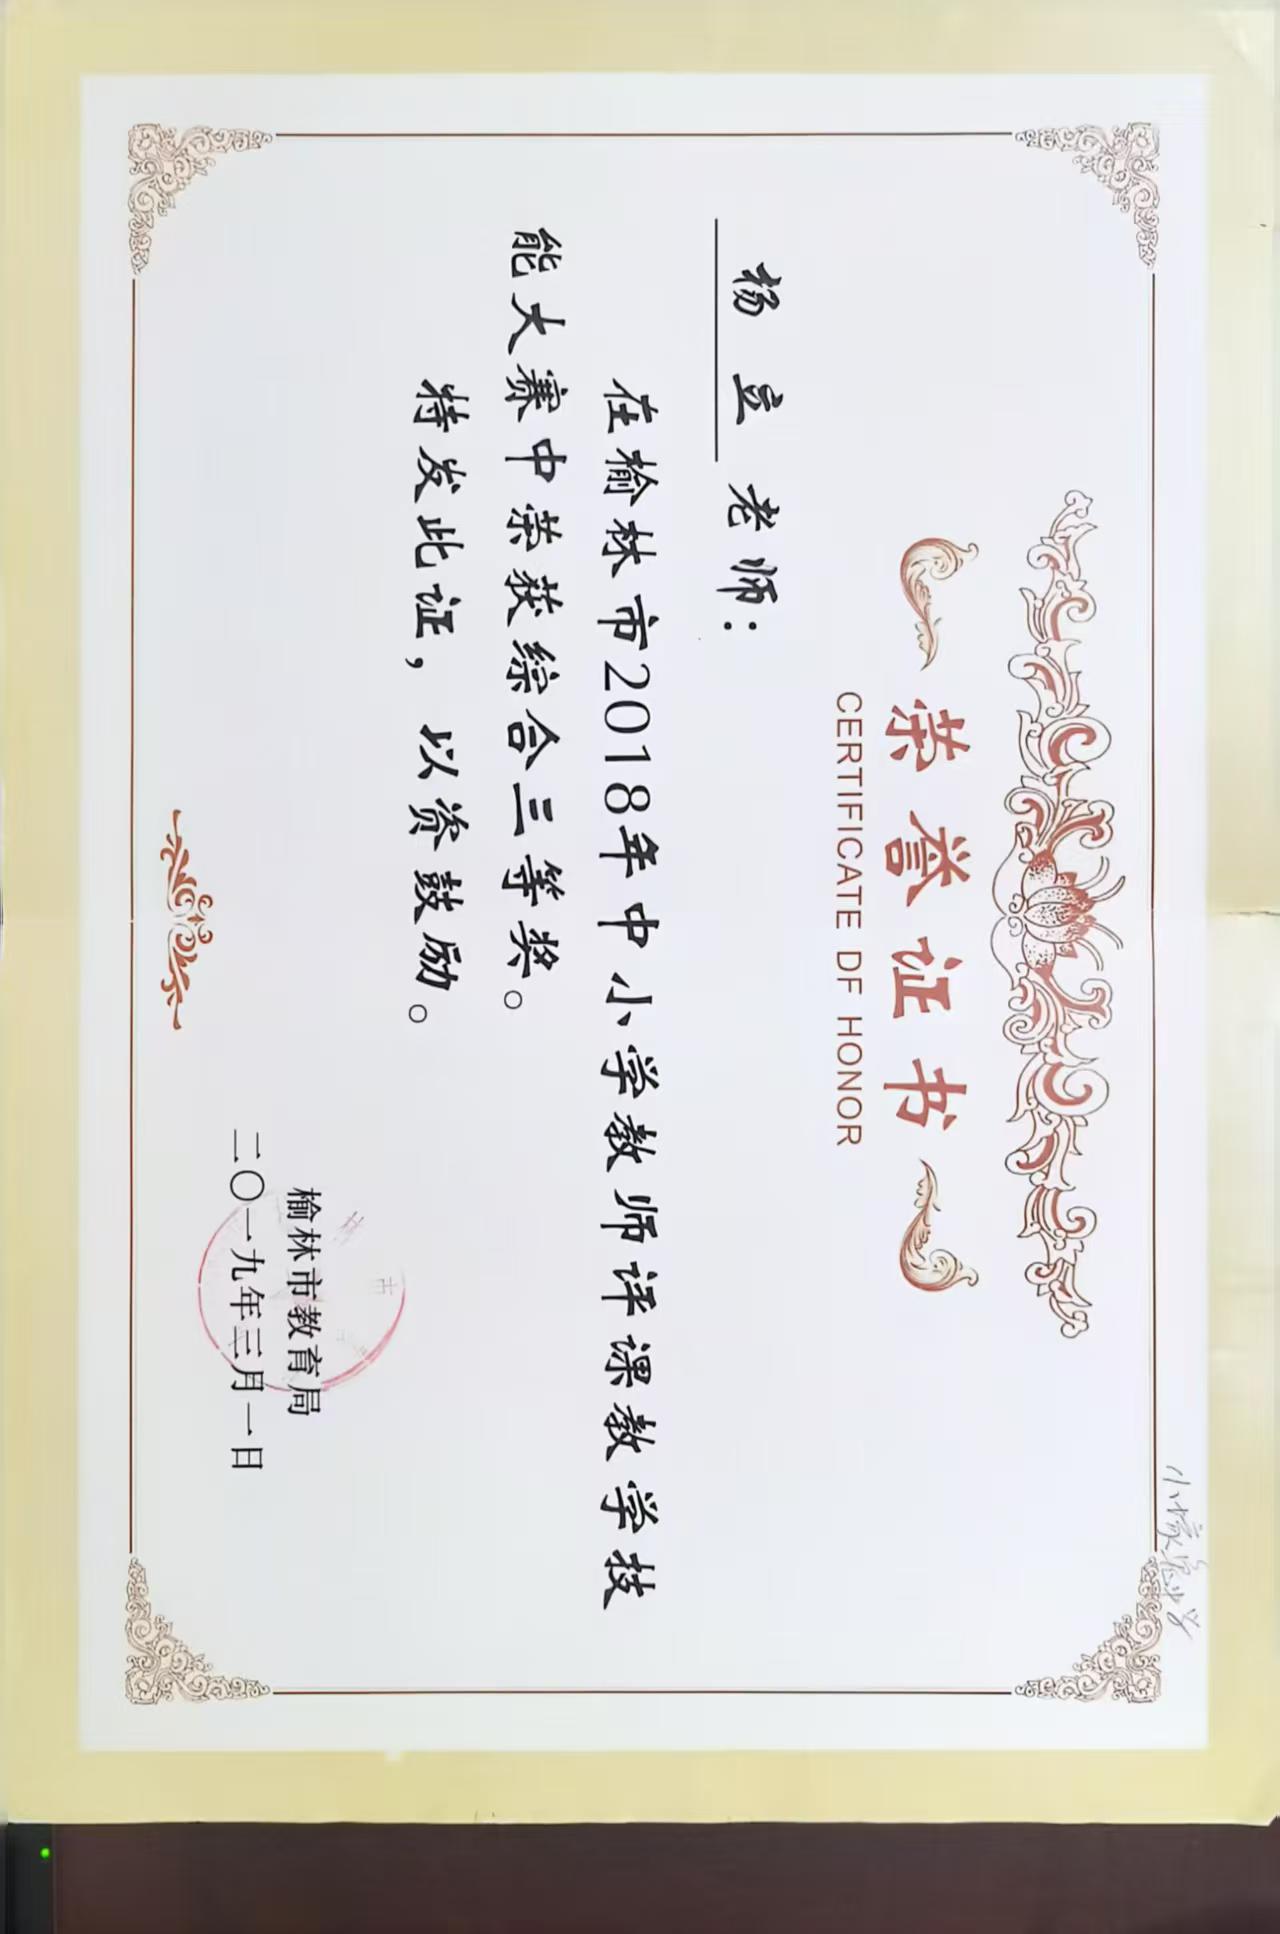 荣誉证书
CERTIFICATE OF HONOR
杨豆 老师：
在榆林市2018年中小学教师评课教学技
能大赛中荣获综合三等奖。
特发此证，以资鼓励。
榆林市教育局
二〇一九年三月一日